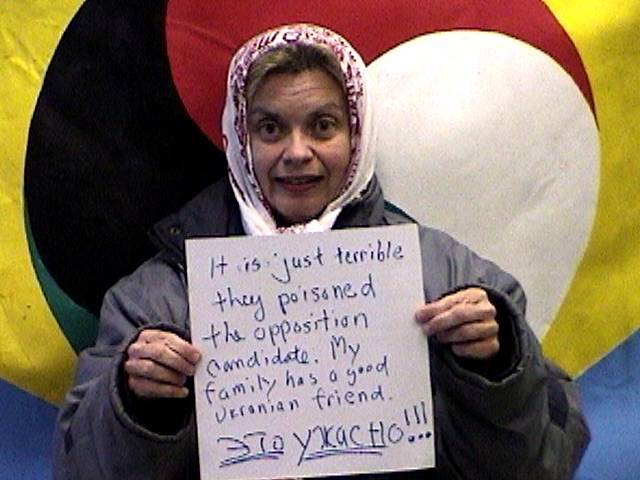 It is just terrible
they poisoned
the opposition
candidate. My
family has a good
Ukranian friend.
Это ужасно!!!